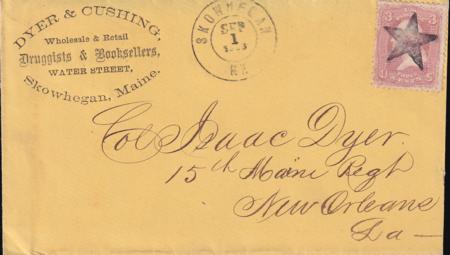 DYER & CUSHING,
Wholesale & Retail
Druggists & Booksellers,
WATER STREET,
Skowhegan, Maine.
SKOWHEGAN
SEP
1
ME.
3 3
Col Isaac Dyer.
15th Maine Regt
New Orleans
La